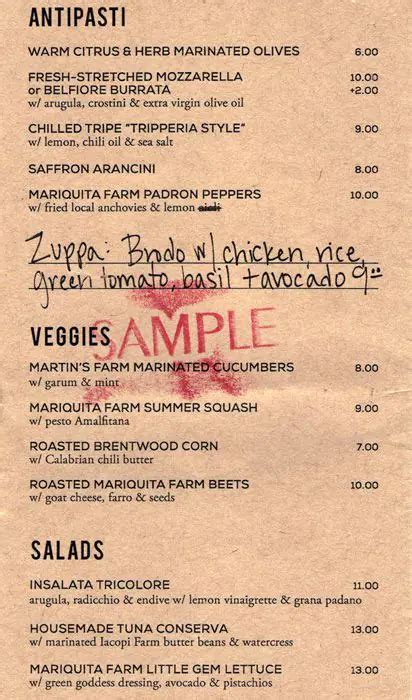 ANTIPASTI
WARM CITRUS & HERB MARINATED OLIVES 6.00
FRESH-STRETCHED MOZZARELLA 10.00
or BELFIORE BURRATA +2.00
w/ arugula, crostini & extra virgin olive oil
CHILLED TRIPE "TRIPPERIA STYLE" 9.00
w/ lemon, chili oil & sea salt
SAFFRON ARANCINI 8.00
MARIQUITA FARM PADRON PEPPERS 10.00
w/ fried local anchovies & lemon aioli
Zuppa: Brodo w/ chicken, rice,
green tomato, basil + avocado 9.00
SAMPLE
VEGGIES
MARTIN'S FARM MARINATED CUCUMBERS 8.00
w/ garum & mint
MARIQUITA FARM SUMMER SQUASH 9.00
w/ pesto Amalfitana
ROASTED BRENTWOOD CORN 7.00
w/ Calabrian chili butter
ROASTED MARIQUITA FARM BEETS 10.00
w/ goat cheese, farro & seeds
SALADS
INSALATA TRICOLORE 11.00
arugula, radicchio & endive w/ lemon vinaigrette & grana padano
HOUSEMADE TUNA CONSERVA 13.00
w/ marinated Iacopi Farm butter beans & watercress
MARIQUITA FARM LITTLE GEM LETTUCE 13.00
w/ green goddess dressing, avocado & pistachios